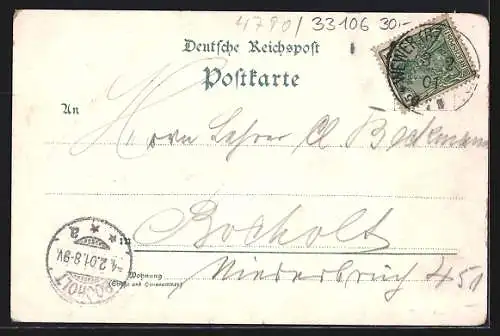 4790/33106 30,-
Deutsche Reichspost
Postkarte
An
Herrn Lehrer Cl. Beckmann
in
Bocholt
Wohnung
(Straße und Hausnummer)
451
BOCHOLT
4.2.01.8-9V.
a